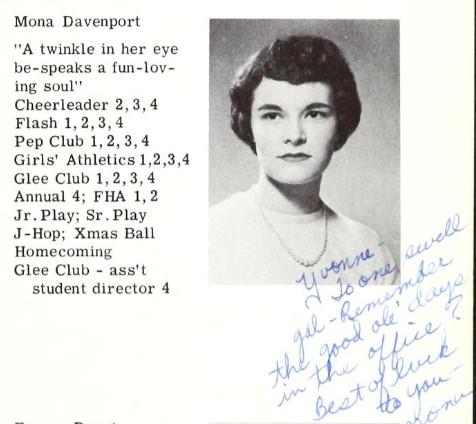 Mona Davenport
"A twinkle in her eye
be-speaks a fun-lov-
ing soul"
Cheerleader 2, 3, 4
Flash 1, 2, 3, 4
Pep Club 1, 2, 3, 4
Girls' Athletics 1,2,3,4
Glee Club 1, 2, 3, 4
Annual 4; FHA 1, 2
Jr. Play; Sr. Play
J-Hop; Xmas Ball
Homecoming
Glee Club - ass't
student director 4
Yvonne-
To one swell
gal - Remember
the good ole' days
in the office?
Best of luck
to you-
Mona